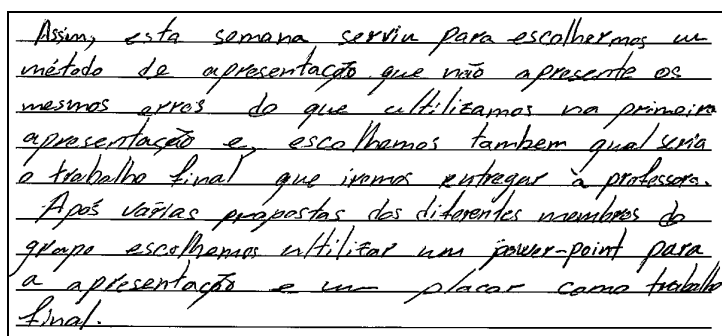 Assim, esta semana serviu para escolhermos um
método de apresentação que não apresente os
mesmos erros do que ultilizamos na primeira
apresentação e, escolhemos tambem qual seria
o trabalho final que iremos entregar à professora.
Após várias propostas dos diferentes membros do
grupo escolhemos ultilizar um power-point para
a apresentação e um placar como trabalho
final.